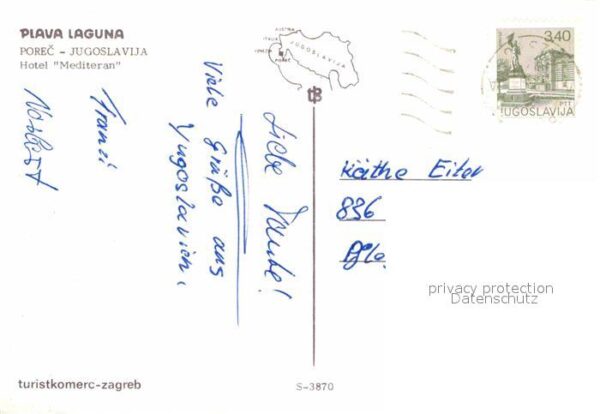 PLAVA LAGUNA
POREČ – JUGOSLAVIJA
Hotel "Mediteran"
AUSTRIA
ITALIA
VENEZIA
POREČ
JUGOSLAVIJA
3,40
PTT
JUGOSLAVIJA
Liebe Tante!
Viele Grüße aus
Jugoslavien,
Franzi
Norbert
Käthe Eiter
836
privacy protection
Datenschutz
turistkomerc-zagreb
S-3870